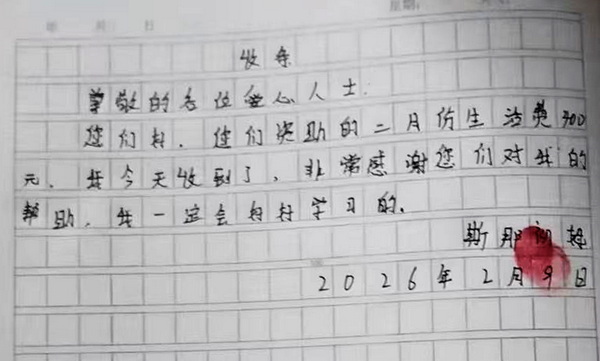 年 月 日
星期:
收条
尊敬的各位爱心人士:
您们好。您们资助的二月份生活费300
元。我今天收到了,非常感谢您们对我的
帮助。我一定会好好学习的。
斯那
2026年2月9日